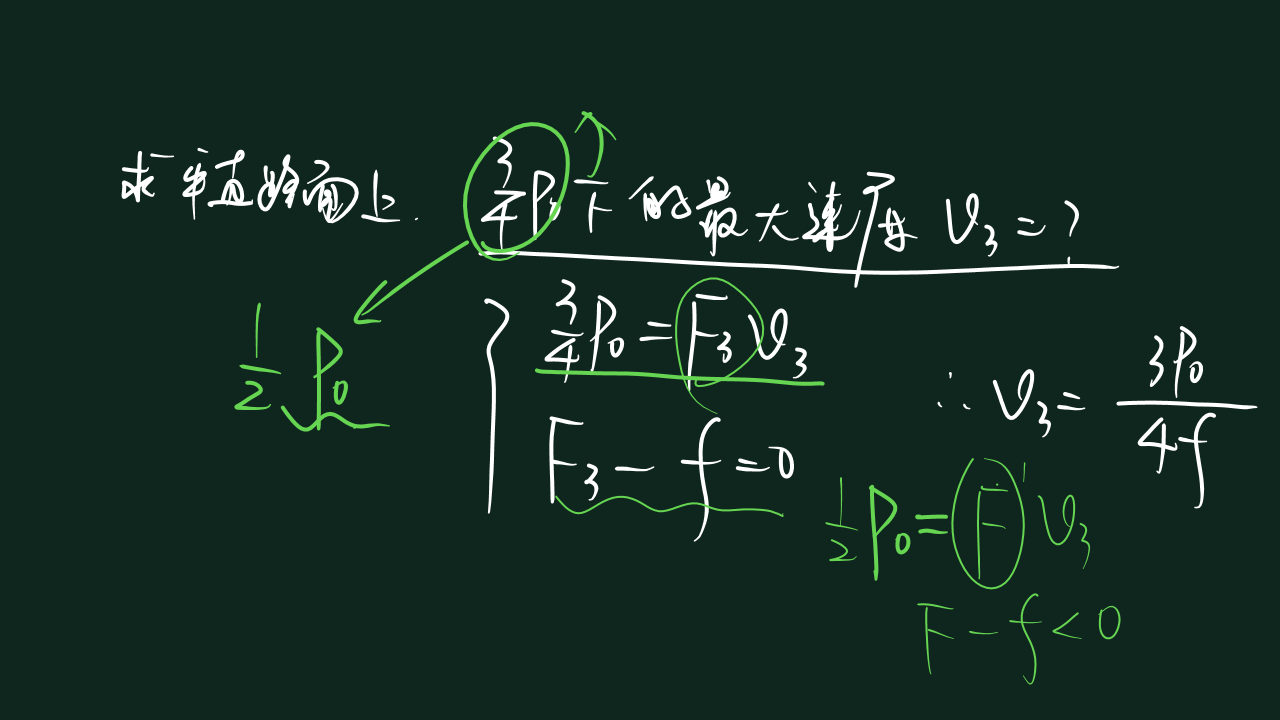 求平直路面上. 3/4 P₀下的最大速度 v₃=?
1/2 P₀
3/4 P₀=F₃v₃
F₃-f=0
∴ v₃= 3P₀/4f
1/2 P₀=F'v₃
F-f<0